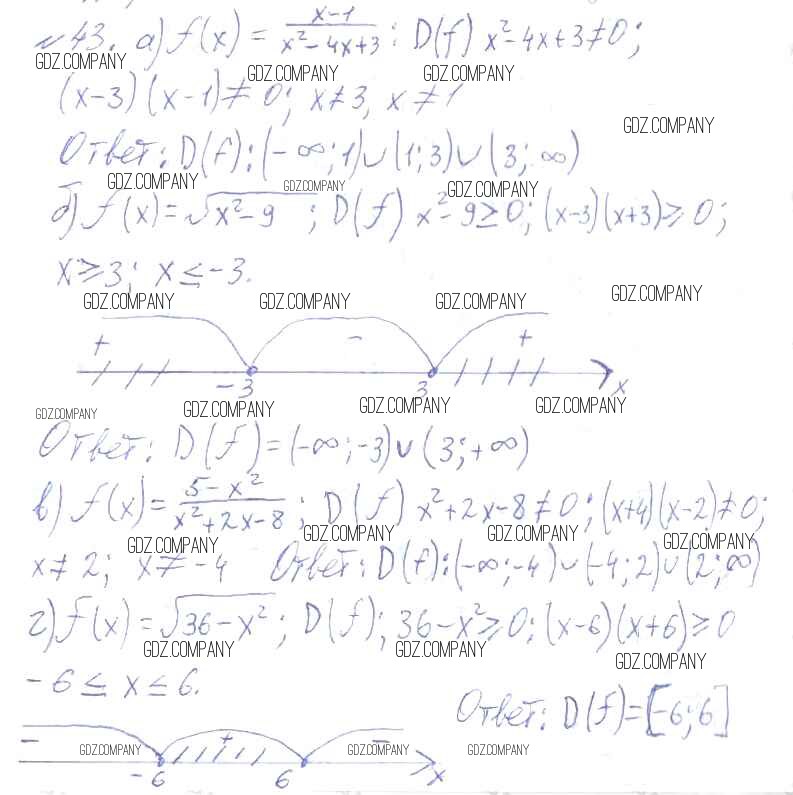 №43. а) f(x) = (x-1)/(x²-4x+3); D(f) x²-4x+3≠0;
GDZ.COMPANY GDZ.COMPANY GDZ.COMPANY
(x-3)(x-1)≠0; x≠3, x≠1
GDZ.COMPANY
Ответ: D(f): (-∞;1)∪(1;3)∪(3;∞)
GDZ.COMPANY GDZ.COMPANY GDZ.COMPANY
б) f(x)=√(x²-9); D(f) x²-9≥0; (x-3)(x+3)≥0;
x≥3; x≤-3.
GDZ.COMPANY GDZ.COMPANY GDZ.COMPANY GDZ.COMPANY
+ - +
-3 3 x
GDZ.COMPANY GDZ.COMPANY GDZ.COMPANY GDZ.COMPANY
Ответ: D(f)=(-∞;-3)∪(3;+∞)
в) f(x)=(5-x²)/(x²+2x-8); D(f) x²+2x-8≠0; (x+4)(x-2)≠0;
GDZ.COMPANY GDZ.COMPANY GDZ.COMPANY GDZ.COMPANY
x≠2; x≠-4 Ответ: D(f):(-∞;-4)∪(-4;2)∪(2;∞)
г) f(x)=√(36-x²); D(f); 36-x²≥0; (x-6)(x+6)≥0
GDZ.COMPANY GDZ.COMPANY GDZ.COMPANY
-6≤x≤6.
Ответ: D(f)=[-6;6]
- + -
GDZ.COMPANY GDZ.COMPANY GDZ.COMPANY
-6 6 x